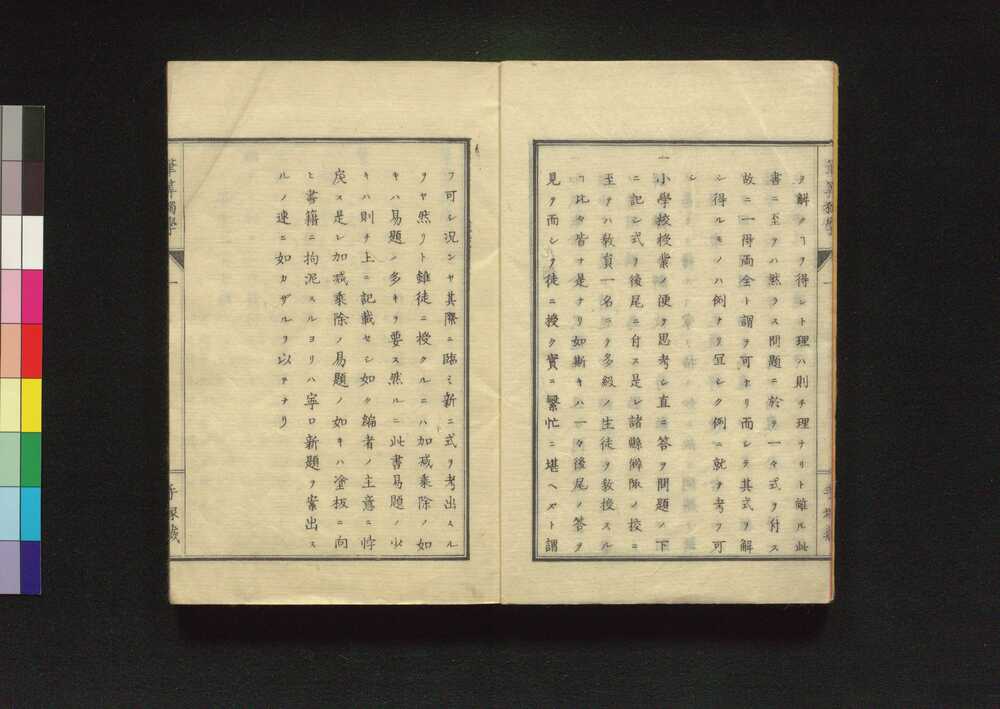 ヲ解クヿヲ得レト理ハ則チ理ナリト雖ル此
書ニ至テハ然ラス問題ニ於テ一々式ヲ付ス
故ニ一得両全ト謂ヲ可ホリ而シテ其式ヲ解
シ得ルモノハ例ナリ冝シク例ニ就テ考フ可
シ
一小學校授業ノ便ヲ思考シ直ニ答ヲ問題ノ下
ニ記シ式ヲ後尾ニ付ス是レ諸縣僻陬ノ校ニ
至テハ教員一名ニテ多級ノ生徒ヲ教授スル
ヿ比々皆ナ是ナリ如斯キハ一々後尾ノ答ヲ
見テ而シテ徒ニ授ク實ニ繫忙ニ堪ヘズト謂
フ可シ况ンヤ其際ニ臨ミ新ニ式ヲ考出スル
ヲヤ然リト雖徒ニ授クルニハ加減乘除ノ如
キハ易題ノ多キヲ要ス然ルニ此書易題ノ少
キハ則チ上ニ記載セシ如ク編者ノ主意ニ悖
戻ス是レ加减乘除ノ易題ノ如キハ塗板ニ向
ヒ書籍ニ拘泥スルヨリハ寧ロ新題ヲ案出ス
ルノ速ニ如カザルヲ以テナリ
筆算獨學
一